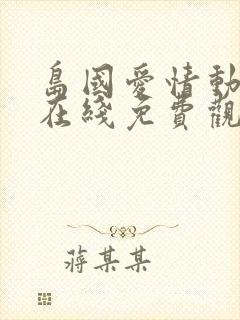 島國愛情動
在綫免費觀
蔣某某